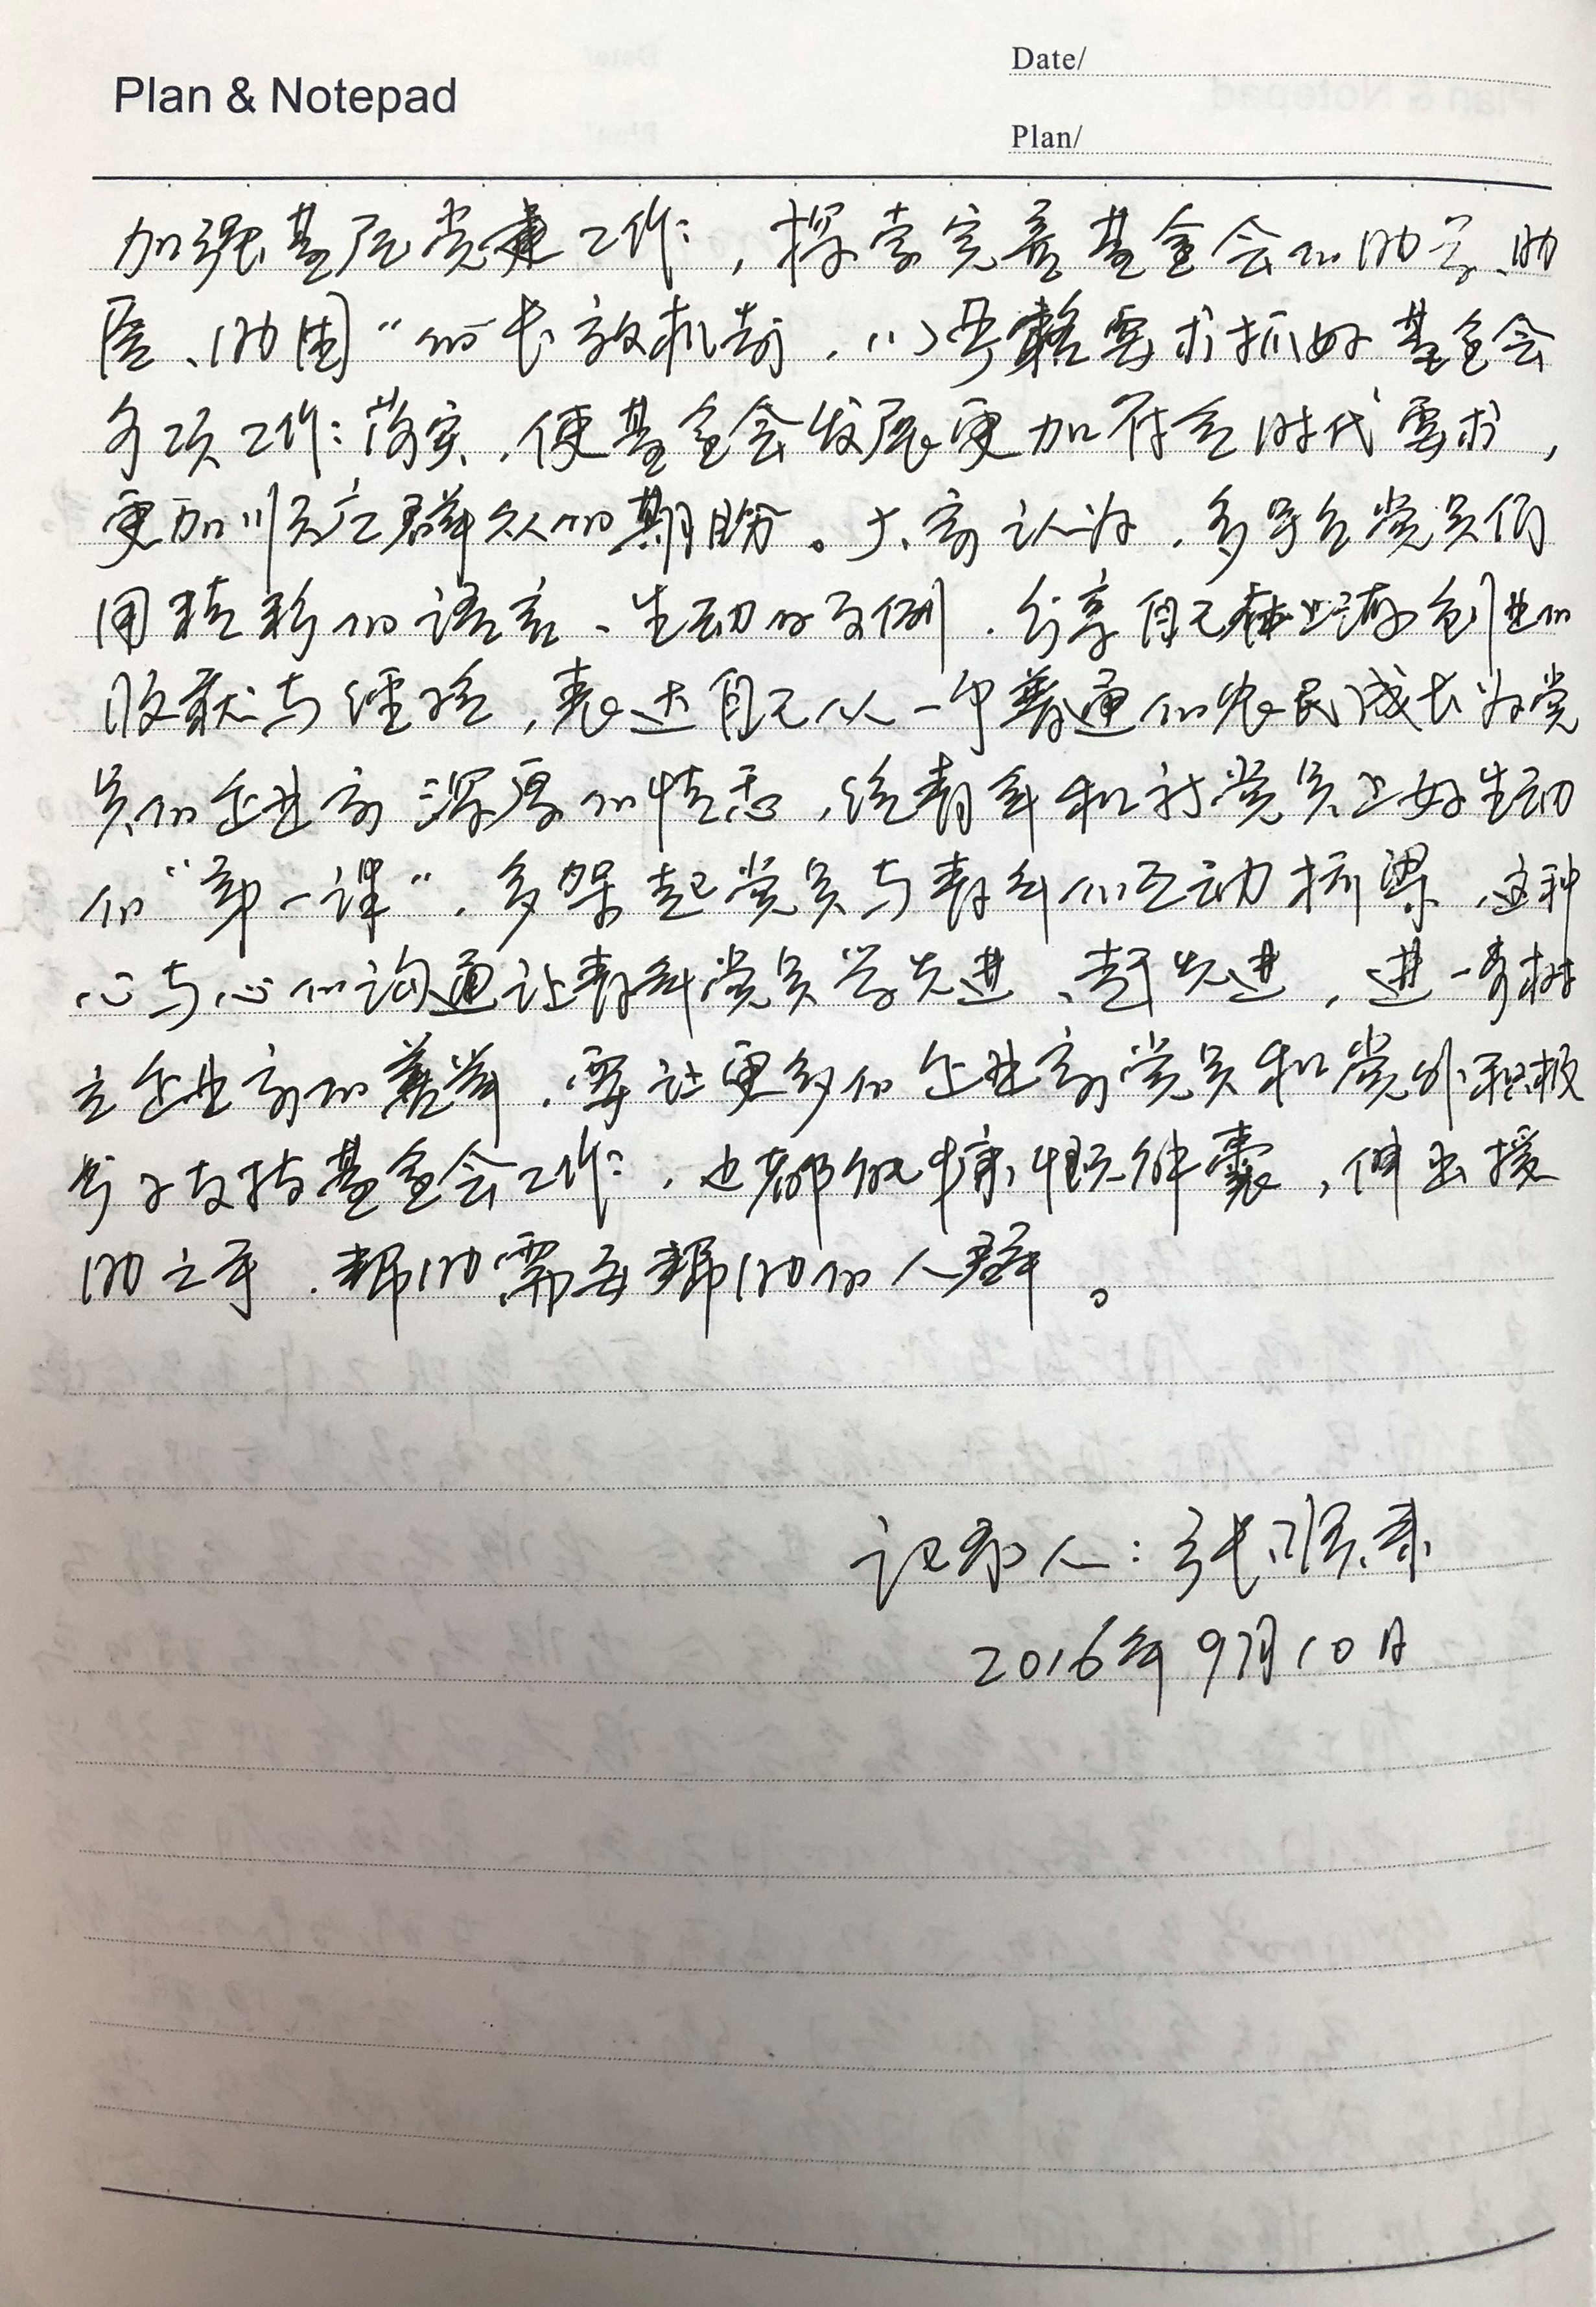 Plan & Notepad
Date/
Plan/
加强基层党建工作，探索完善基金会的助学、助
医、助困”的长效机制，以严格要求抓好基金会
各项工作落实，使基金会发展更加符合时代要求，
更加顺应群众的期盼。大家认为，多导台党员们
用精彩的语言、生动的事例，分享自己在上海创业的
收获与经验，表达自己从一个普通的农民成长为党
员的企业家深厚的情感，给青年和新党员上好生动
的“第一课”，多架起党员与青年的互动桥梁，这种
心与心的沟通让青年党员学先进、赶先进，进一步树
立企业家的善举，要让更多的企业家党员和党外积极
分子支持基金会工作，也都能慷慨解囊，伸出援
助之手，帮助需要帮助的人群。
记录人：张顺
2016年9月10日